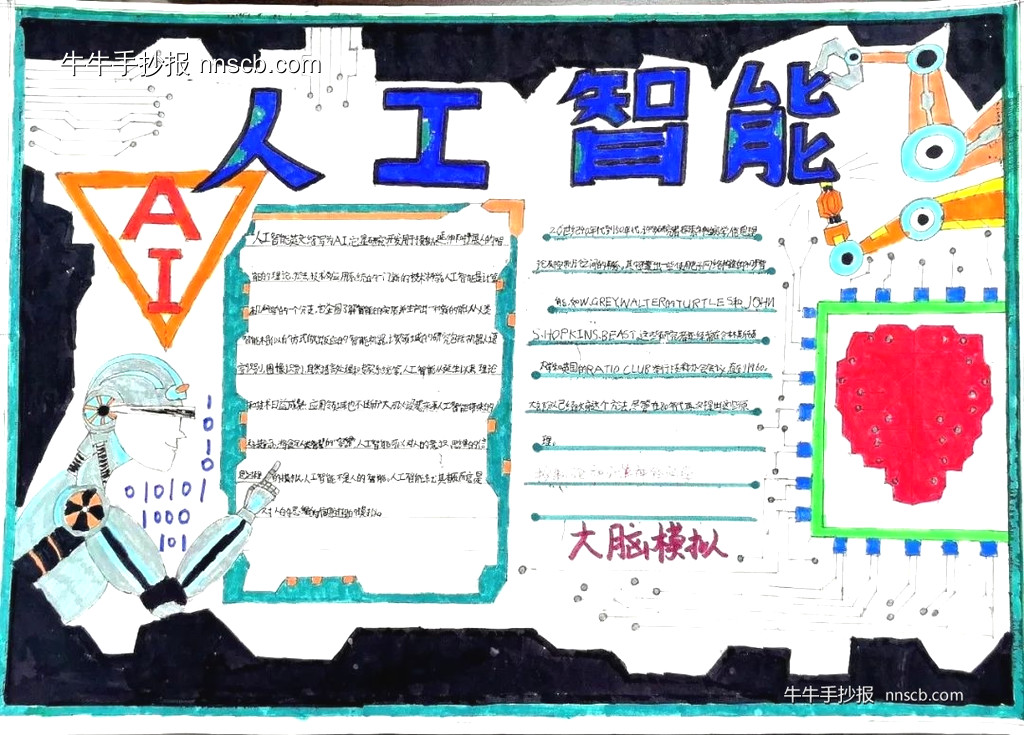 牛牛手抄报 nnscb.com
人工智能
AI
人工智能英文缩写为AI.它是研究开发用于模拟延伸和扩展人的智
能的理论.方法.技术及应用系统的一门新的技术科学人工智能是计算
机科学的一个分支.它企图了解智能的实质并生产出一种新的能以人类
智能相似
的方式做出反应的智能机器.该领域的研究包括机器人语
言识别.图像识别.自然语言处理和专家系统等人工智能从诞生以来理论
和技术日益成熟.应用领域也不断扩大.可以设想未来人工智能带来的
科技产品.将会是人类智慧的"容器"人工智能可以对人的意识.思维的信
息过程的模拟.人工智能不是人的智能.人工智能
对人的思维的信息过程的模拟。
20世纪40年代到50年代.
能.如W.GREY WALTER的TURTLES和JOHN
S.HOPKINS.BEAST.这些研究者
RATIO CLUB举行技术协会会议.直到1960.
大部分人已经放弃这个方法.尽管在80年代再次提出这些原
理。
大脑模拟
1
0
1
0
010101
1000
101
牛牛手抄报 nnscb.com